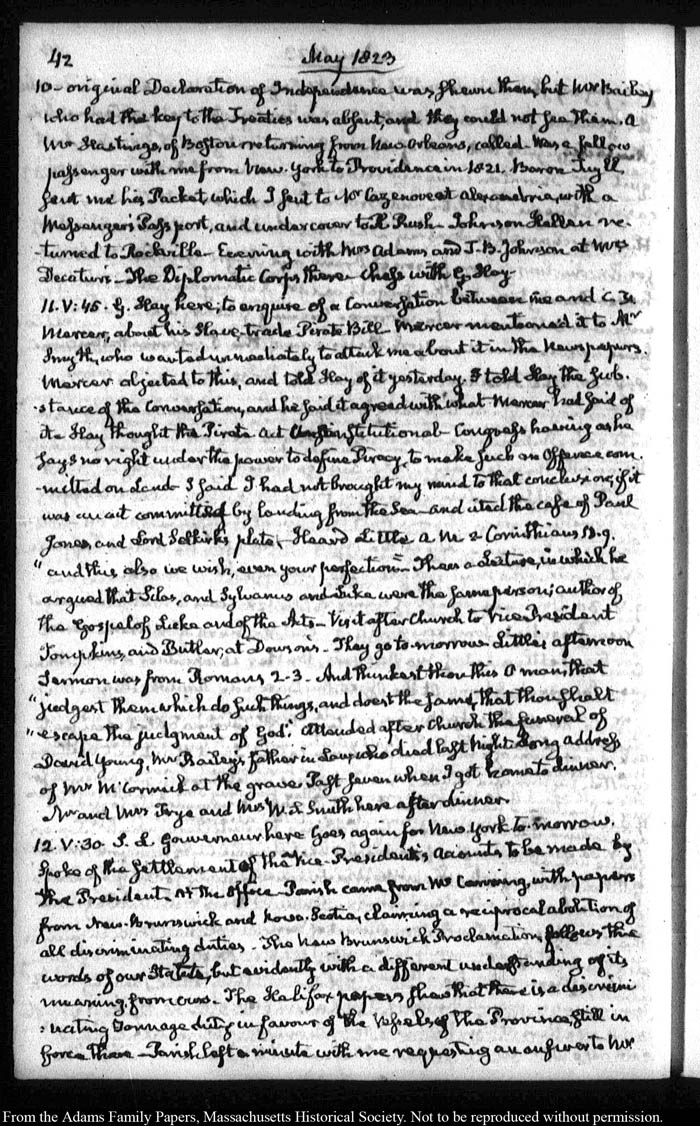 42
May 1823
10 - original Declaration of Independence was shewn them, but Mr Bailey
who had the key to the Treaties was absent, and they could not see them. A
Mr Hastings, of Boston returning from New Orleans, called. Was a fellow
passenger with me from New York to Providence in 1821. Baron Tuyll
sent me his Packet which I sent to Mr Cazenove at Alexandria, with a
Messenger's Passport, and under cover to R. Rush - Johnson Hellen re-
-turned to Rockville - Evening with Mrs Adams and T. B. Johnson at Mrs
Decatur's - The Diplomatic Corps there - Chess with G. Hay -
11. V:45. G. Hay here; to enquire of a Conversation between me and C. F.
Mercer, about his Slave, trade Pirate Bill - Mercer mentioned it to Mr
Smyth, who wanted immediately to attack me about it in the Newspapers.
Mercer objected to this, and told Hay of it yesterday. I told Hay the sub.
-stance of the Conversation, and he said it agreed with what Mercer had said of
it - Hay thought the Pirate Act Unconstitutional - Congress having as he
says no right under the power to define Piracy, to make such an Offence com.
-mitted on Land - I said I had not brought my mind to that conclusion, if it
was an act committed by landing from the Sea - and cited the case of Paul
Jones, and Lord Selkirk's plate - Heard Little A.M. 2 Corinthians 13.9.
"and this also we wish, even your perfection" - Then a Lecture, in which he
argued that Silas, and Sylvanus and Luke were the same person; author of
the Gospel of Luke and of the Acts - Visit after Church to Vice-President
Tompkins, and Butler, at Dowson's - They go to-morrow. Little's afternoon
Sermon was from Romans 2-3. And thinkest thou this O man, that
"judgest them which do such things, and doest the same, that thou shalt
"escape the judgment of God". Attended after Church the funeral of
David Young, Mr Bailey's father in Law, who died last Night. Long address
of Mr McCormick at the grave Past seven when I got home to dinner.
Mr and Mrs Frye and Mrs W. S. Smith here after dinner.
12. V:30. S. L. Gouverneur here Goes again for New York to-morrow.
Spoke of the settlement of the Vice-President's Accounts to be made by
the President. At the Office - Parish came from Mr Canning, with papers
from New-Brunswick and Nova-Scotia, claiming a reciprocal abolition of
all discriminating duties - The New Brunswick Proclamation, follows the
words of our Statute, but evidently with a different understanding of its
meaning, from ours - The Halifax papers shew that there is a discrimi
-nating Tonnage duty in favour of the Vessels of the Province, still in
force there - Parish left a minute with me requesting an answer to Mr
From the Adams Family Papers, Massachusetts Historical Society. Not to be reproduced without permission.